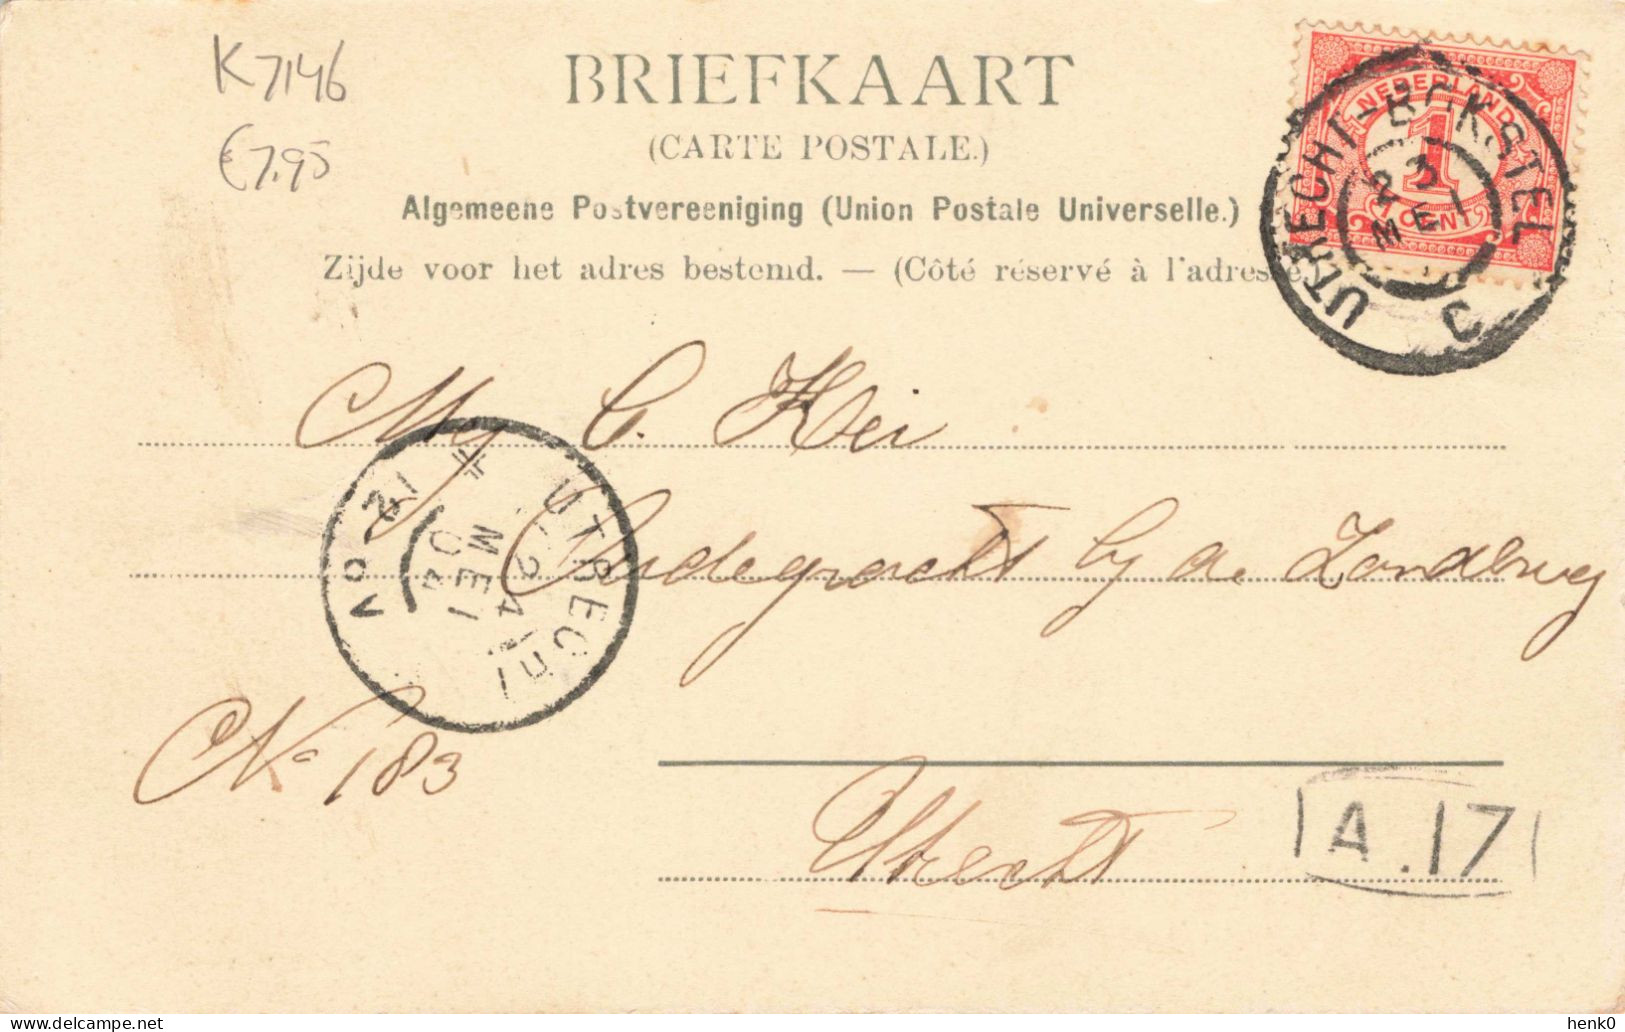 K7146
€7.95
BRIEFKAART
(CARTE POSTALE.)
Algemeene Postvereeniging (Union Postale Universelle.)
Zijde voor het adres bestemd. — (Côté réservé à l'adresse.)
NEDERLAND
1
1 CENT
UTRECHT-BOKSTEL
23 MEI
D
Mej C. Hei
Oudegracht bij de Zandbrug
UTRECHT
24 MEI 04
12-1
No 183
Utrecht
A.17
henk0